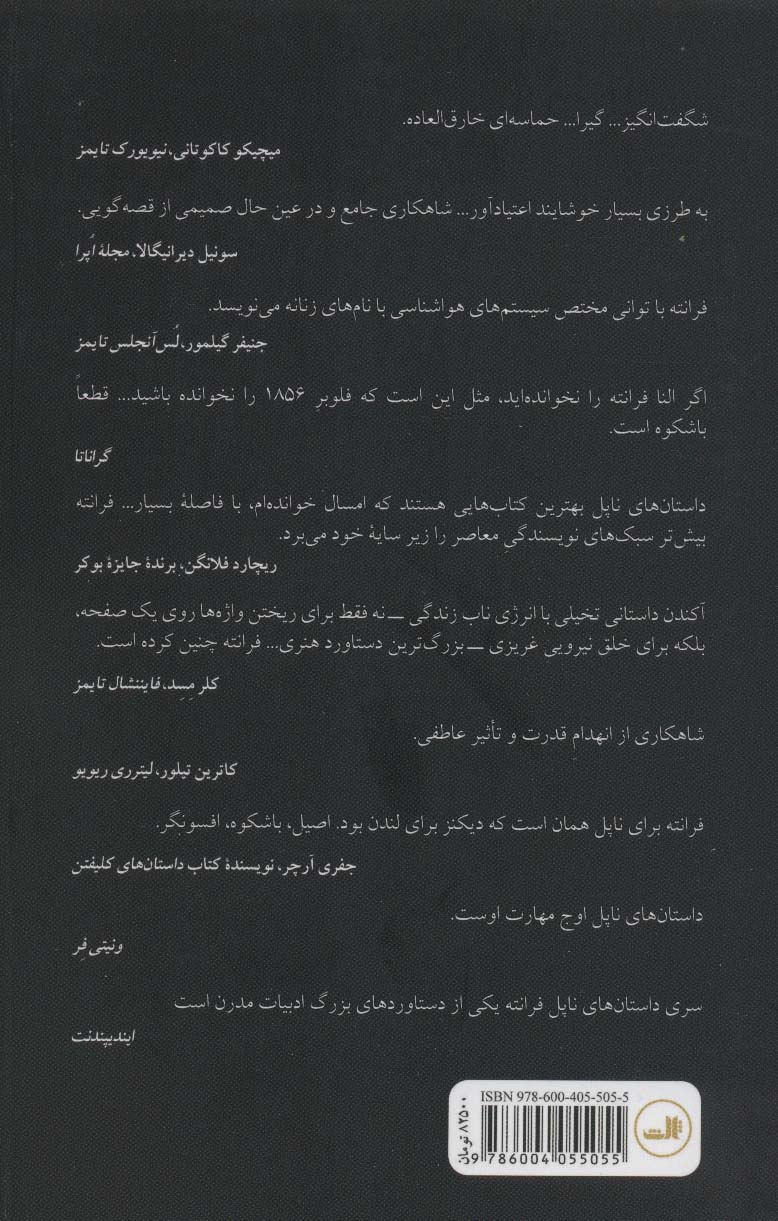 شگفت‌انگیز... گیرا... حماسه‌ای خارق‌العاده.
میچیکو کاکوتانی، نیویورک تایمز
به طرزی بسیار خوشایند اعتیادآور... شاهکاری جامع و در عین حال صمیمی از قصه‌گویی.
سونیل دیرانیگالا، مجلهٔ اُپرا
فرانته با توانی مختص سیستم‌های هواشناسی با نام‌های زنانه می‌نویسد.
جنیفر گیلمور، لُس‌آنجلس تایمز
اگر النا فرانته را نخوانده‌اید، مثل این است که فلوبرِ ۱۸۵۶ را نخوانده باشید... قطعاً
باشکوه است.
گراناتا
داستان‌های ناپل بهترین کتاب‌هایی هستند که امسال خوانده‌ام، با فاصلهٔ بسیار... فرانته
بیش‌تر سبک‌های نویسندگیِ معاصر را زیر سایهٔ خود می‌برد.
ریچارد فلانگن، برندهٔ جایزهٔ بوکر
آکندن داستانی تخیلی با انرژی ناب زندگی ـــ نه فقط برای ریختن واژه‌ها روی یک صفحه،
بلکه برای خلق نیرویی غریزی ـــ بزرگ‌ترین دستاورد هنری... فرانته چنین کرده است.
کلر مِسِد، فایننشال تایمز
شاهکاری از انهدامِ قدرت و تأثیر عاطفی.
کاترین تیلور، لیترری ریویو
فرانته برای ناپل همان است که دیکنز برای لندن بود. اصیل، باشکوه، افسونگر.
جفری آرچر، نویسندهٔ کتاب داستان‌های کلیفتن
داستان‌های ناپل اوج مهارت اوست.
ونیتی فِر
سری داستان‌های ناپل فرانته یکی از دستاوردهای بزرگ ادبیات مدرن است
ایندیپندنت
ISBN 978-600-405-505-5
۸۲۵۰۰ تومان
9 786004 055055
ثالث